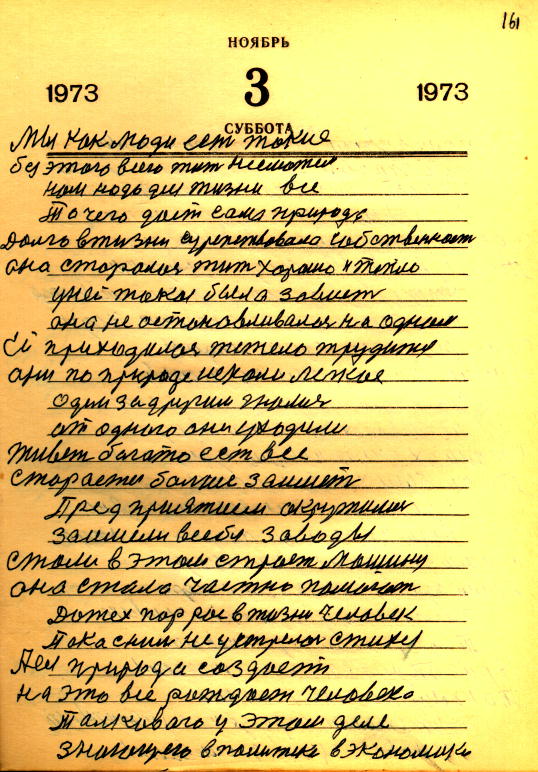 161
НОЯБРЬ
1973 3 1973
СУББОТА
Мы как люди ест такие
без этого всего жит
нам надо для жизни все
То чего дает сама природа
Долго в жизни сурествовала собственност
она старалая жит хорошо и тепло
уней такая была завист
она не останавливалая на одном
Ей приходилоя тежело трудится
они по природе искали легкое
Один за другим гналия
от одного они уходили
Живет багато ест все
старается болше заимет
Пред приятием окружилия
заимели всебя заводы
стали в этом строет машину
она стала частно помогат
До тех пор рос в жизни человек
Пака с ним не устрелоя стихея
Дея природа создает
на это все рождает человека
Талкового у этом деле
знающего в политеке в экономике